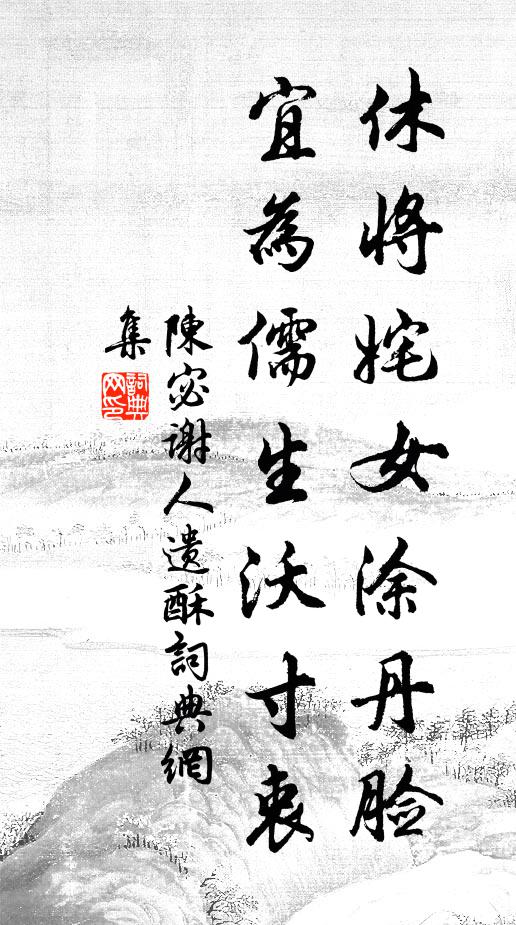 休將姹女涂丹脸
宜為儒生沃寸衷
陳宓谢人遗酥詞典網
集
詞典
网印